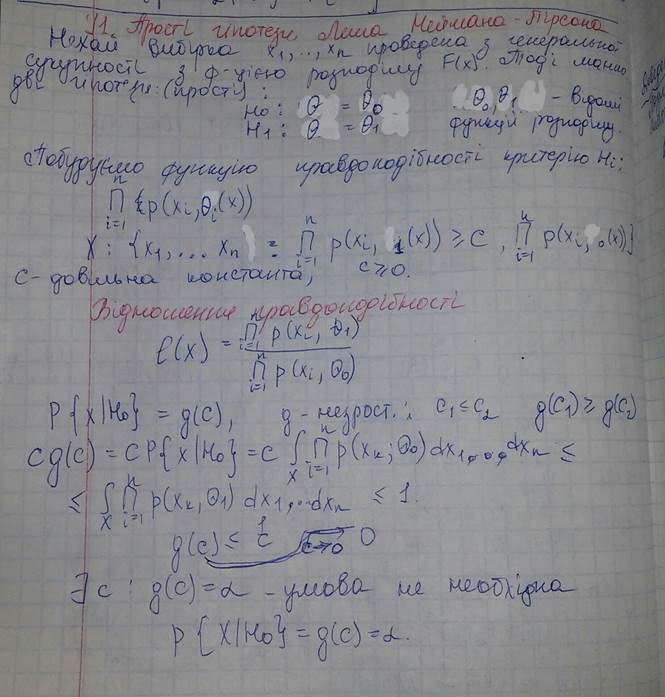 11. Прості гіпотези. Лема Неймана-Пірсона
Нехай вибірка x₁,..,xₙ проведена з генеральної
сукупності з ф-цією розподілу F(x). Тоді маємо
дві гіпотези: (прості):
H₀: θ = θ₀    θ₀, θ₁ - відомі
H₁: θ = θ₁    функції розподілу.
Побудуємо функцію правдоподібності критерію Hᵢ:
∏ᵢ₌₁ⁿ p(xᵢ, θᵢ(x))
X: {x₁,... xₙ) : ∏ᵢ₌₁ⁿ p(xᵢ, ₁(x)) ≥ C , ∏ᵢ₌₁ⁿ p(xᵢ, ₀(x))}
C - довільна константа, c ≥ 0.
Відношення правдоподібності
ℓ(x) = ∏ᵢ₌₁ⁿ p(xᵢ, θ₁) / ∏ᵢ₌₁ⁿ p(xᵢ, θ₀)
P{X|H₀} = g(c), g - незрост. : c₁ ≤ c₂ g(c₁) ≥ g(c₂)
cg(c) = cP{X|H₀} = c ∫_X ∏ᵢ₌₁ⁿ p(xₖ; θ₀) dx₁...dxₙ ≤
≤ ∫_X ∏ᵢ₌₁ⁿ p(xₖ, θ₁) dx₁,...dxₙ ≤ 1.
g(c) ≤ 1/c → 0
∃ c : g(c) = α - умова не необхідна
P{X|H₀} = g(c) = α.